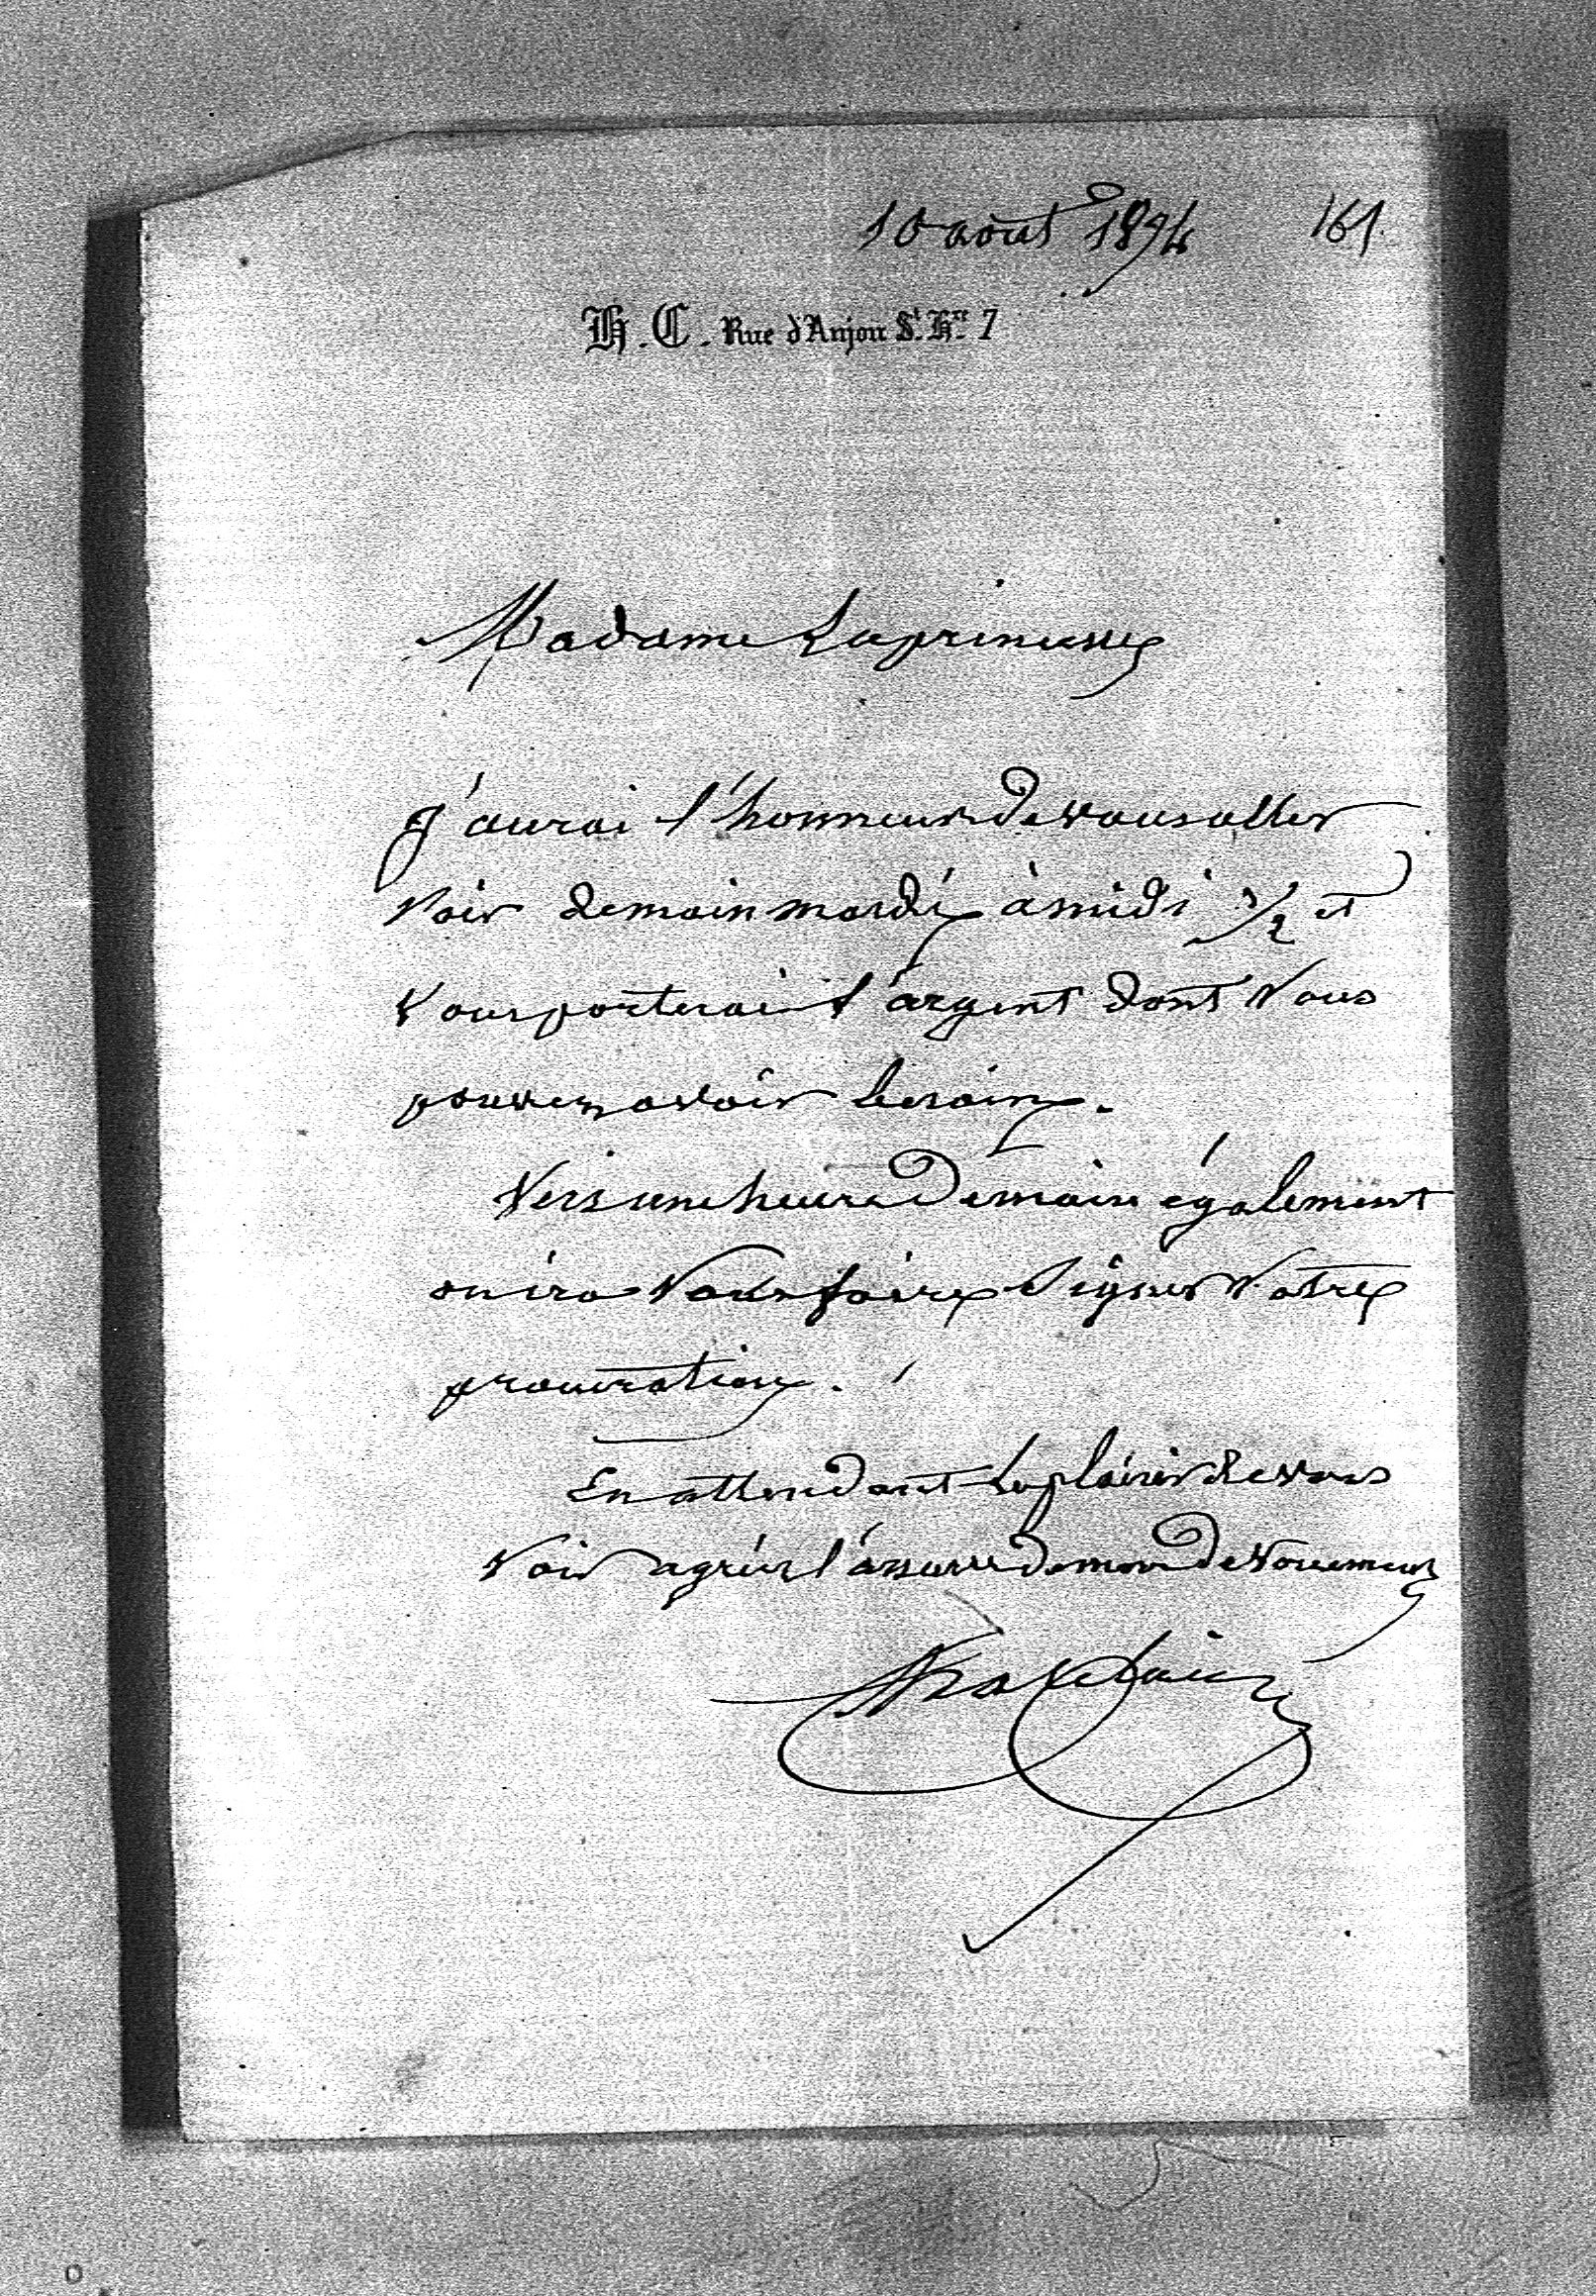 10 août 1874 161.
H. C. Rue d'Anjou St. Hré. 7
Madame la princesse
J'aurai l'honneur de vous aller
voir demain mardi à midi 1/2 et
vous porterai l'argent dont vous
pouvez avoir besoin.
Vers une heure demain également
on ira vous faire signer votre
procuration.
En attendant le plaisir de vous
voir agréez l'assurce de mon dévouement